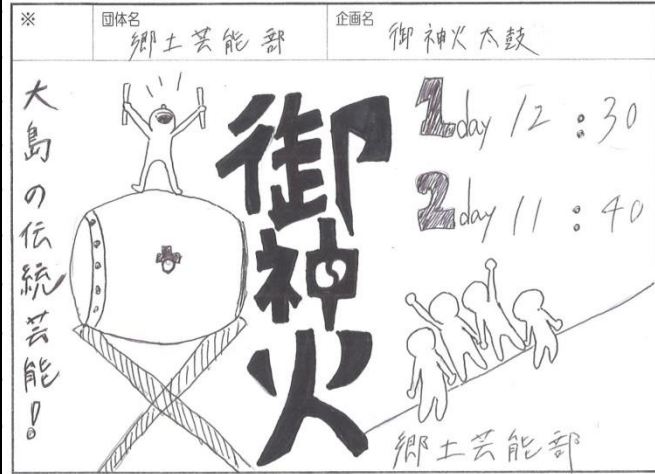 ※
団体名
郷土芸能部
企画名
御神火太鼓
大島の伝統芸能!
御神火
1day 12:30
2day 11:40
郷土芸能部